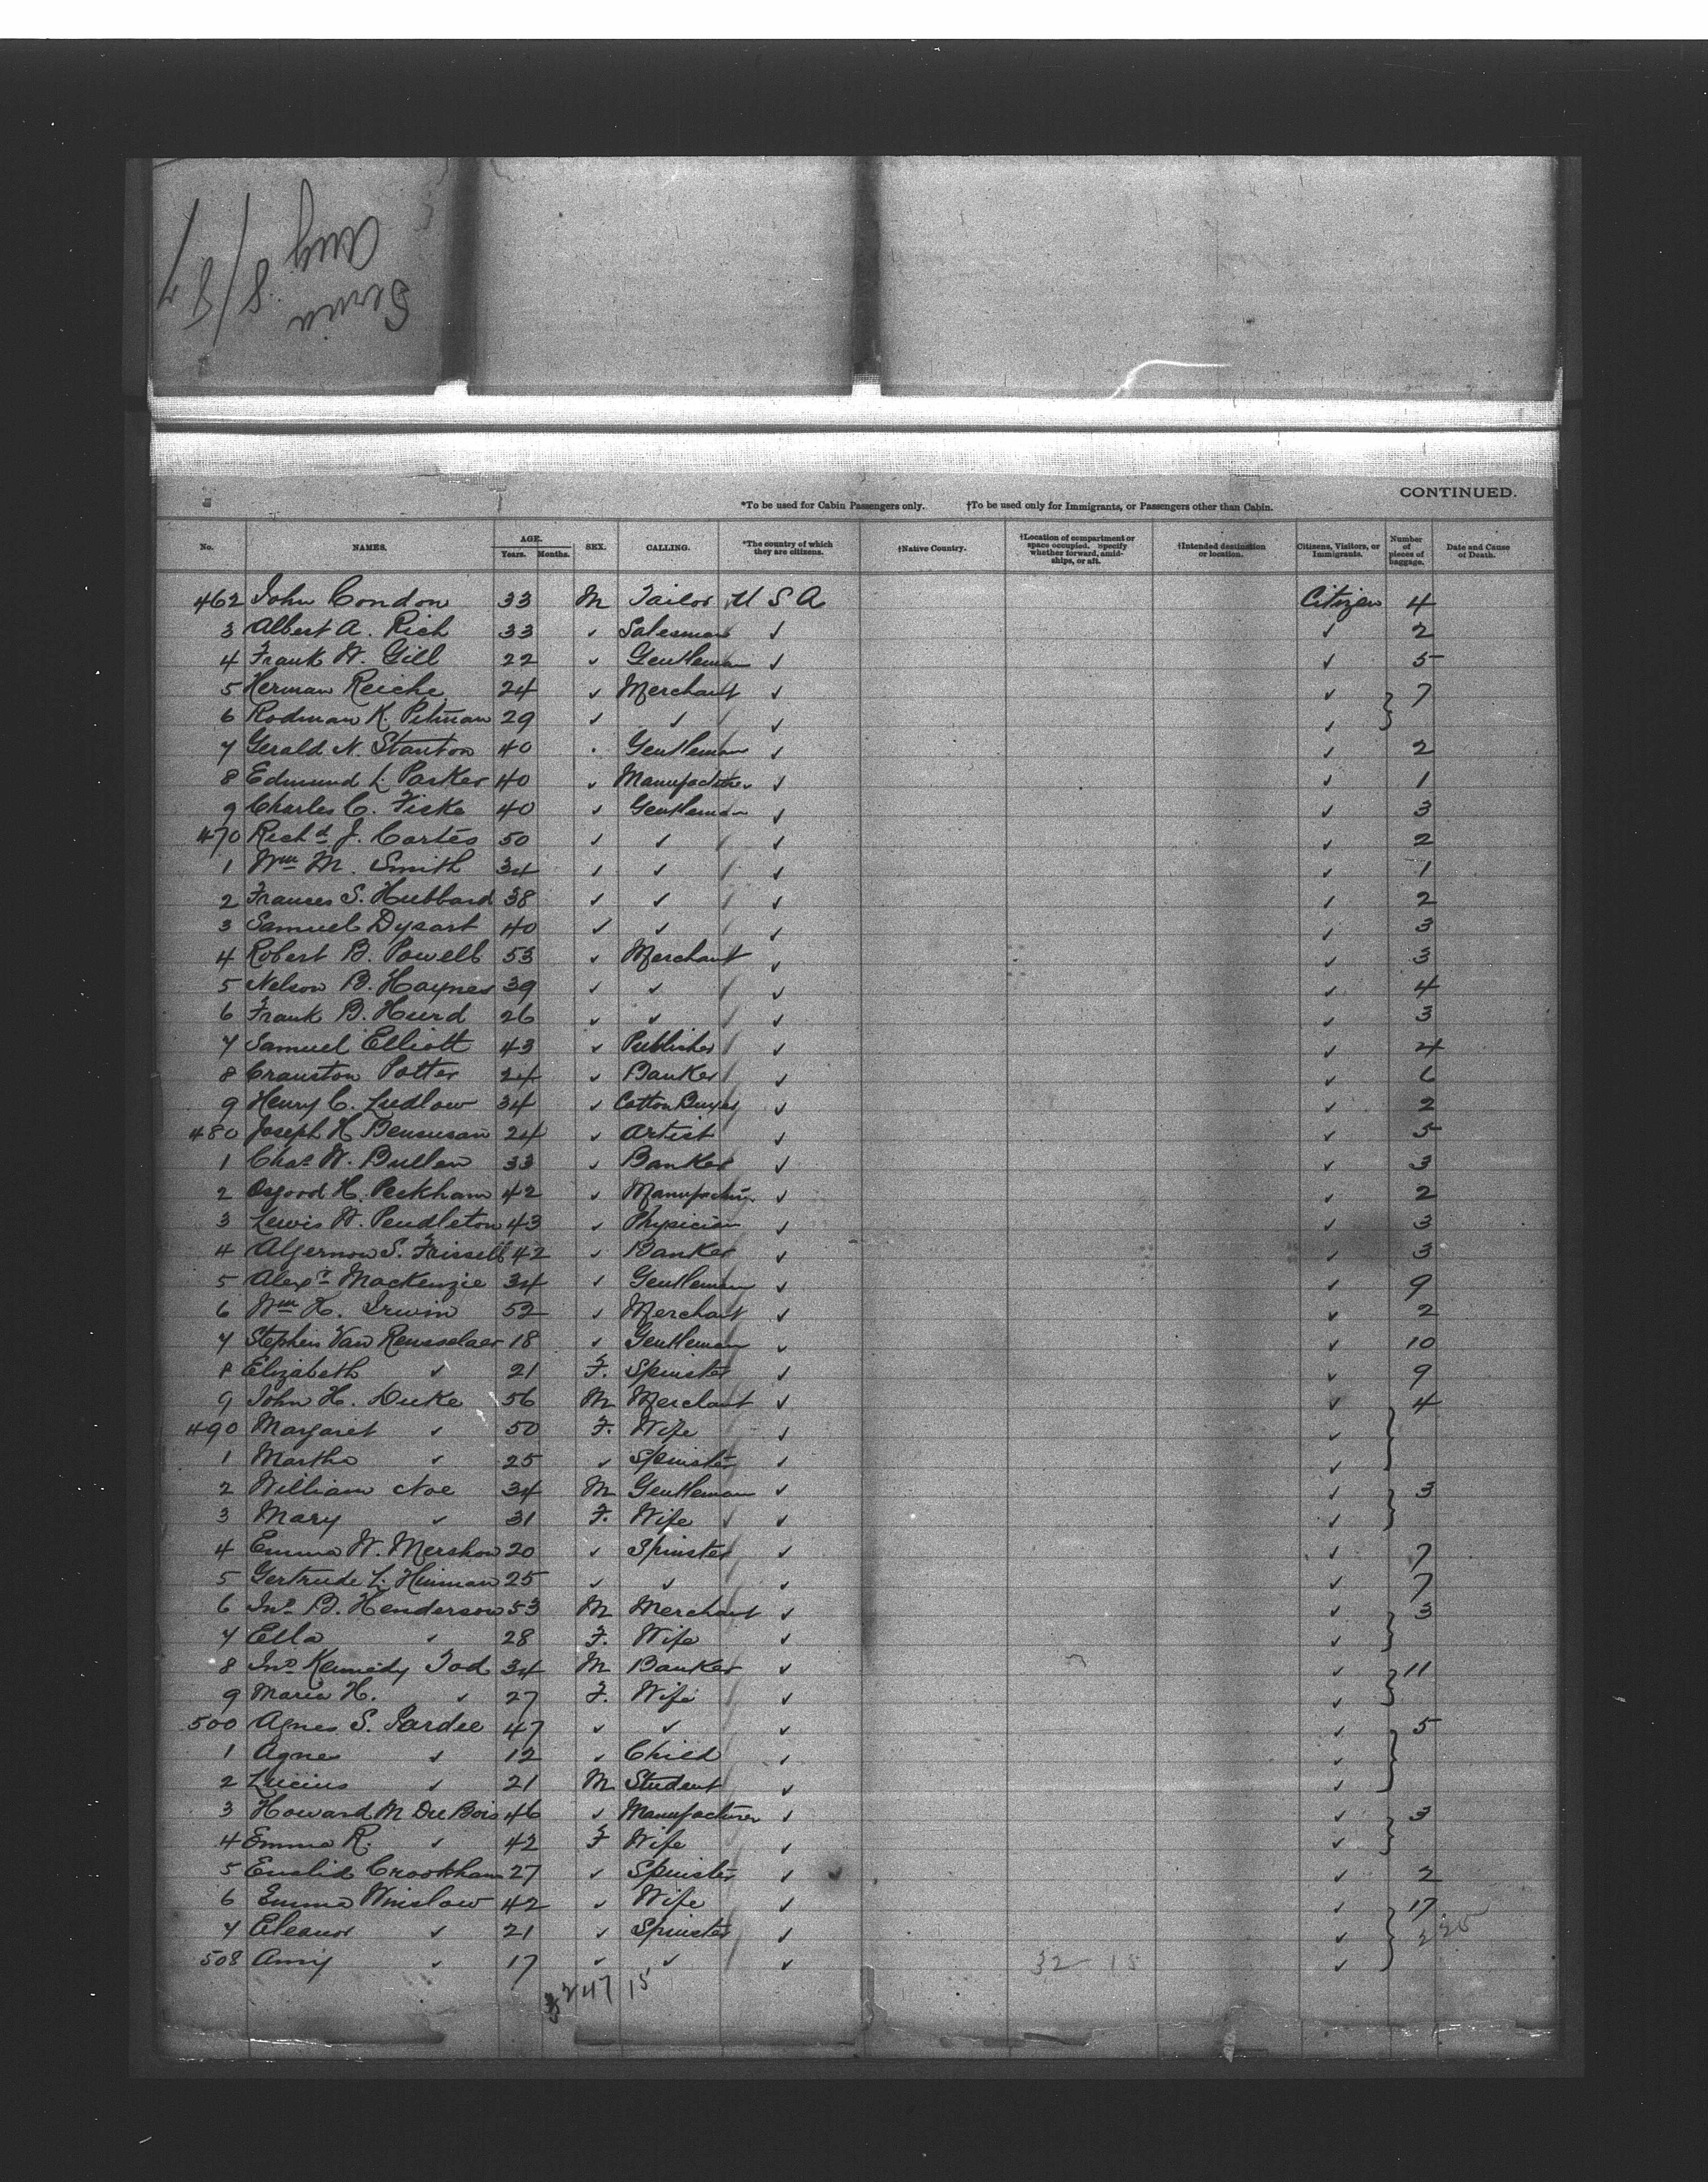 Aug
8/87
CONTINUED.
*To be used for Cabin Passengers only. †To be used only for Immigrants, or Passengers other than Cabin.
No. NAMES. AGE. Years. Months. SEX. CALLING. *The country of which they are citizens. †Native Country. †Location of compartment or space occupied. Specify whether forward, amidships, or aft. †Intended destination or location. Citizens, Visitors, or Immigrants. Number of pieces of baggage. Date and Cause of Death.
462 John Condon 33 M Tailor U S A Citizen 4
3 Albert A. Rich 33 ✓ Salesman ✓ ✓ 2
4 Frank W. Gill 22 ✓ Gentleman ✓ ✓ 5
5 Herman Reiche 24 ✓ Merchant ✓ ✓ 7
6 Rodman K. Pitman 29 ✓ ✓ ✓ ✓
7 Gerald N. Stanton 40 . Gentleman ✓ ✓ 2
8 Edmund L. Parker 40 ✓ Manufacturer ✓ ✓ 1
9 Charles C. Fiske 40 ✓ Gentleman ✓ ✓ 3
470 Richd J. Cortes 50 ✓ ✓ ✓ ✓ 2
1 Wm M. Smith 34 ✓ ✓ ✓ ✓ 1
2 Frances S. Hubbard 38 ✓ ✓ ✓ ✓ 2
3 Samuel Dysart 40 ✓ ✓ ✓ ✓ 3
4 Robert B. Powell 53 ✓ Merchant ✓ ✓ 3
5 Nelson B. Haynes 39 ✓ ✓ ✓ ✓ 4
6 Frank B. Hurd 26 ✓ ✓ ✓ ✓ 3
7 Samuel Elliott 43 ✓ Publisher ✓ ✓ 4
8 Cranston Potter 24 ✓ Banker ✓ ✓ 6
9 Henry C. Ludlow 34 ✓ Cotton Buyer ✓ ✓ 2
480 Joseph H Bensusan 24 ✓ Artist ✓ ✓ 5
1 Chas W. Bullen 33 ✓ Banker ✓ ✓ 3
2 Osgood H. Peckham 42 ✓ Manufactur. ✓ ✓ 2
3 Lewis W. Pendleton 43 ✓ Physician ✓ ✓ 3
4 Algernon S. Frissell 42 ✓ Banker ✓ ✓ 3
5 Alexr Mackenzie 34 ✓ Gentleman ✓ ✓ 9
6 Wm H. Irwin 52 ✓ Merchant ✓ ✓ 2
7 Stephen Van Rensselaer 18 ✓ Gentleman ✓ ✓ 10
8 Elizabeth ✓ 21 F. Spinster ✓ ✓ 9
9 John H. Duke 56 M Merchant ✓ ✓ 4
490 Margaret ✓ 50 F. Wife ✓ ✓
1 Martha ✓ 25 ✓ Spinster ✓ ✓
2 William Noe 34 M Gentleman ✓ ✓ 3
3 Mary ✓ 31 F. Wife ✓ ✓
4 Emma W. Mershon 20 ✓ Spinster ✓ ✓ 7
5 Gertrude L. Hinman 25 ✓ ✓ ✓ ✓ 7
6 Jno B. Henderson 53 M Merchant ✓ ✓ 3
7 Ella ✓ 28 F. Wife ✓ ✓
8 Jno Kennedy Tod 34 M Banker ✓ ✓ 11
9 Maria H. ✓ 27 F. Wife ✓ ✓
500 Agnes S. Pardee 47 ✓ ✓ ✓ ✓ 5
1 Agnes ✓ 12 ✓ Child ✓ ✓
2 Lucius ✓ 21 M Student ✓ ✓
3 Howard M Du Bois 46 ✓ Manufacturer ✓ ✓ 3
4 Emma R. ✓ 42 F Wife ✓ ✓
5 Enslid Crookham 27 ✓ Spinster ✓ ✓ 2
6 Emma Winslow 42 ✓ Wife ✓ ✓ 17
7 Eleanor ✓ 21 ✓ Spinster ✓ ✓
508 Amy ✓ 17 ✓ ✓ ✓ 32 15 ✓
47 15